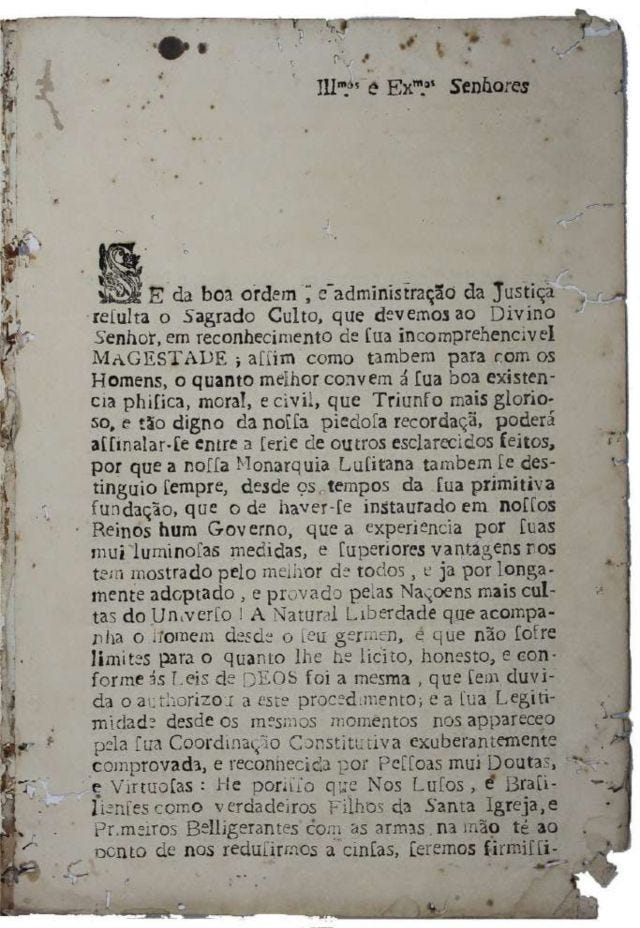 Illmos e Exmos Senhores
SE da boa ordem, e administração da Justiça
resulta o Sagrado Culto, que devemos ao Divino
Senhor, em reconhecimento de sua incomprehencivel
MAGESTADE; assim como tambem para com os
Homens, o quanto melhor convem á sua boa existen-
cia phisica, moral, e civil, que Triunfo mais glorio-
so, e tão digno da nossa piedosa recordaçã, poderá
assinalar-se entre a serie de outros esclarecidos feitos,
por que a nossa Monarquia Lusitana tambem se des-
tinguio sempre, desde os tempos da sua primitiva
fundação, que o de haver-se instaurado em nossos
Reinos hum Governo, que a experiencia por suas
mui luminosas medidas, e superiores vantagens nos
tem mostrado pelo melhor de todos, e ja por longa-
mente adoptado, e provado pelas Naçoens mais cul-
tas do Universo! A Natural Liberdade que acompa-
nha o Homem desde o seu germen, e que não sofre
limites para o quanto lhe he licito, honesto, e con-
forme ás Leis de DEOS foi a mesma, que sem duvi-
da o authorizou a este procedimento; e a sua Legiti-
midade desde os mesmos momentos nos appareceo
pela sua Coordinação Constitutiva exuberantemente
comprovada, e reconhecida por Pessoas mui Doutas,
e Virtuosas: He porisso que Nos Lusos, e Brasi-
lienses como verdadeiros Filhos da Santa Igreja, e
Primeiros Belligerantes com as armas na mão té ao
ponto de nos redusirmos a cinsas, seremos firmissi-